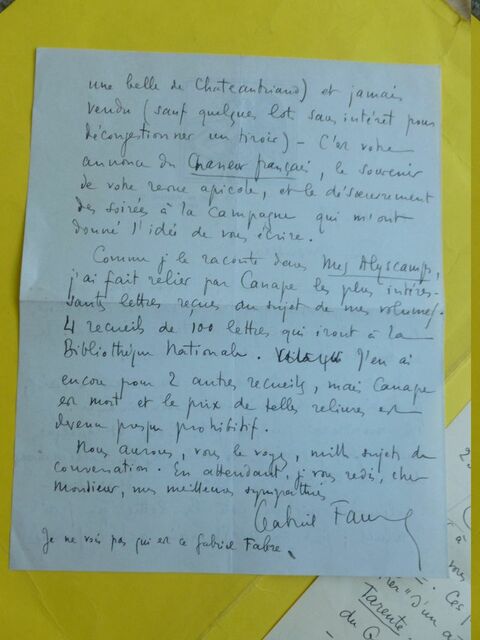 une belle de Chateaubriand) et jamais
vendu (sauf quelques lot sans intérêt pour
décongestionner un tiroir) – C'est votre
annonce du Chasseur français, le souvenir
de votre revue apicole, et le désœuvrement
des soirées à la campagne qui m'ont
donné l'idée de vous écrire.
Comme je le raconte dans Mes Alyscamps,
j'ai fait relier par Canape les plus intéres-
santes lettres reçues au sujet de mes volumes.
4 recueils de 100 lettres qui iront à la
Bibliothèque Nationale. J'en ai
encore pour 2 autres recueils, mais Canape
est mort et le prix de telles reliures est
devenu presque prohibitif.
Nous aurons, vous le voyez, mille sujets de
conversation. En attendant, je vous redis, cher
Monsieur, mes meilleures sympathies
Gabriel Faure
Je ne vois pas qui est ce Gabriel Fabre.
à vous
Ces
d'un a
Tarente
du